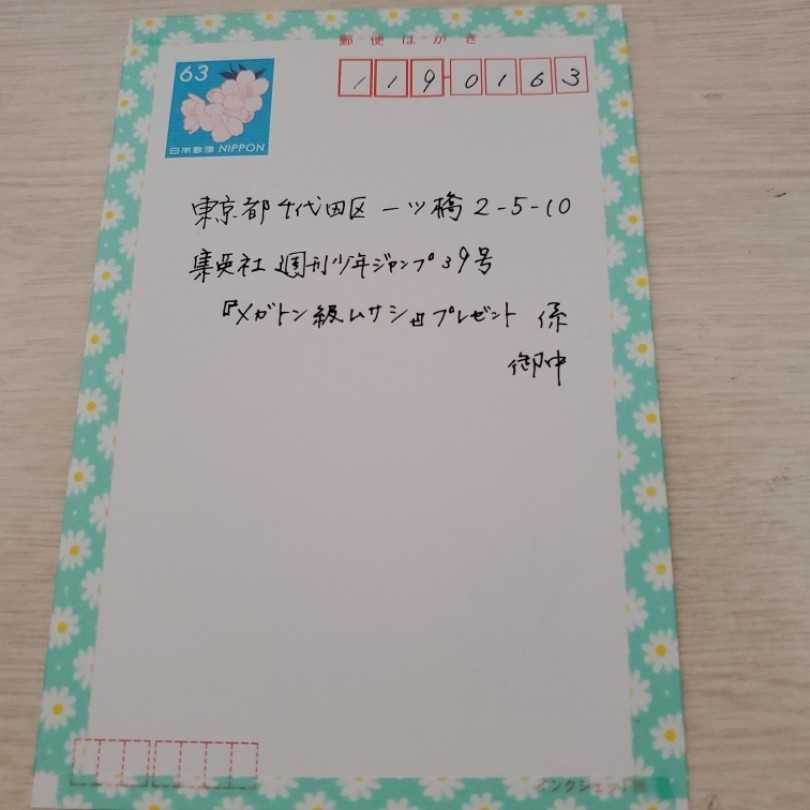 郵便はがき
63
日本郵便 NIPPON
119-0163
東京都千代田区一ツ橋2-5-10
集英社 週刊少年ジャンプ39号
『メガトン級ムサシ』プレゼント 係
御中